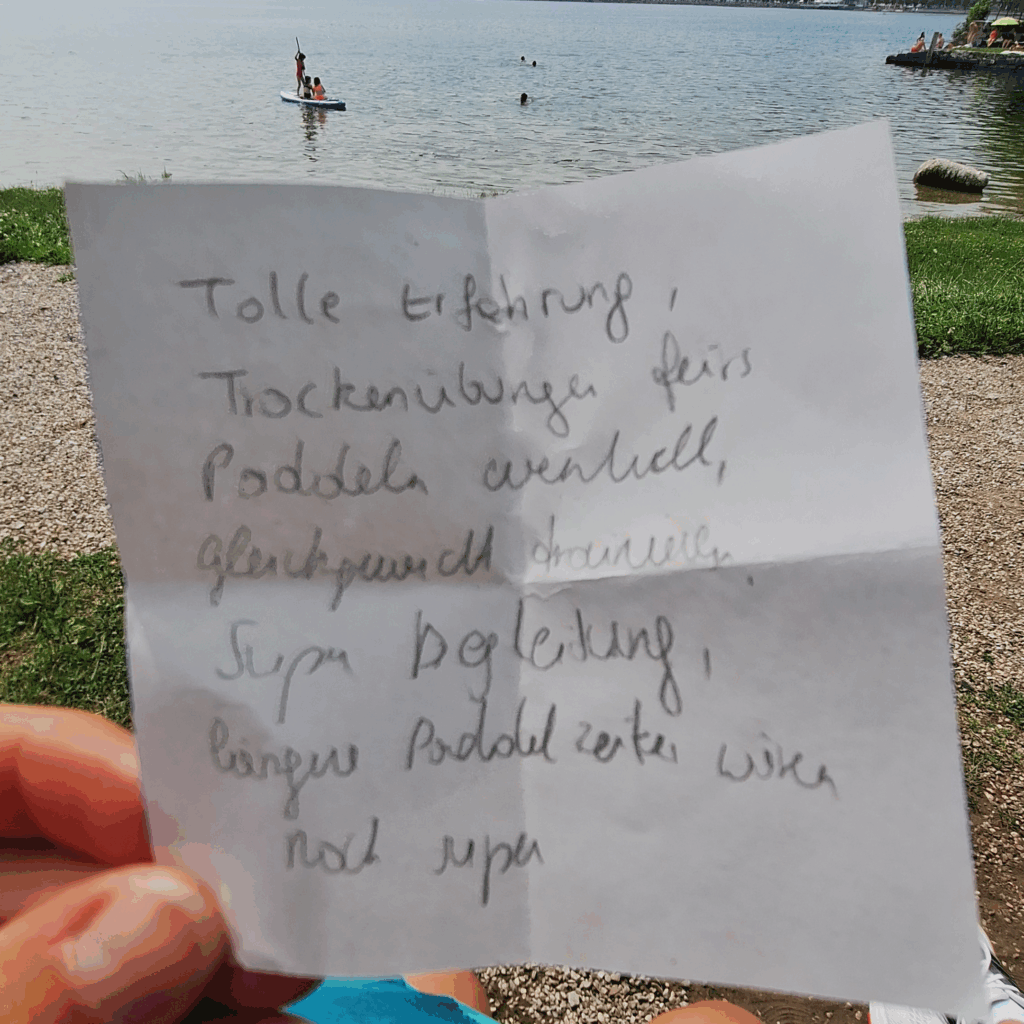 Tolle Erfahrung,
Trockenübungen fürs
Paddeln eventuell,
gleichgewicht trainieren,
Super Begleitung,
längere Paddelzeiten wären
noch super